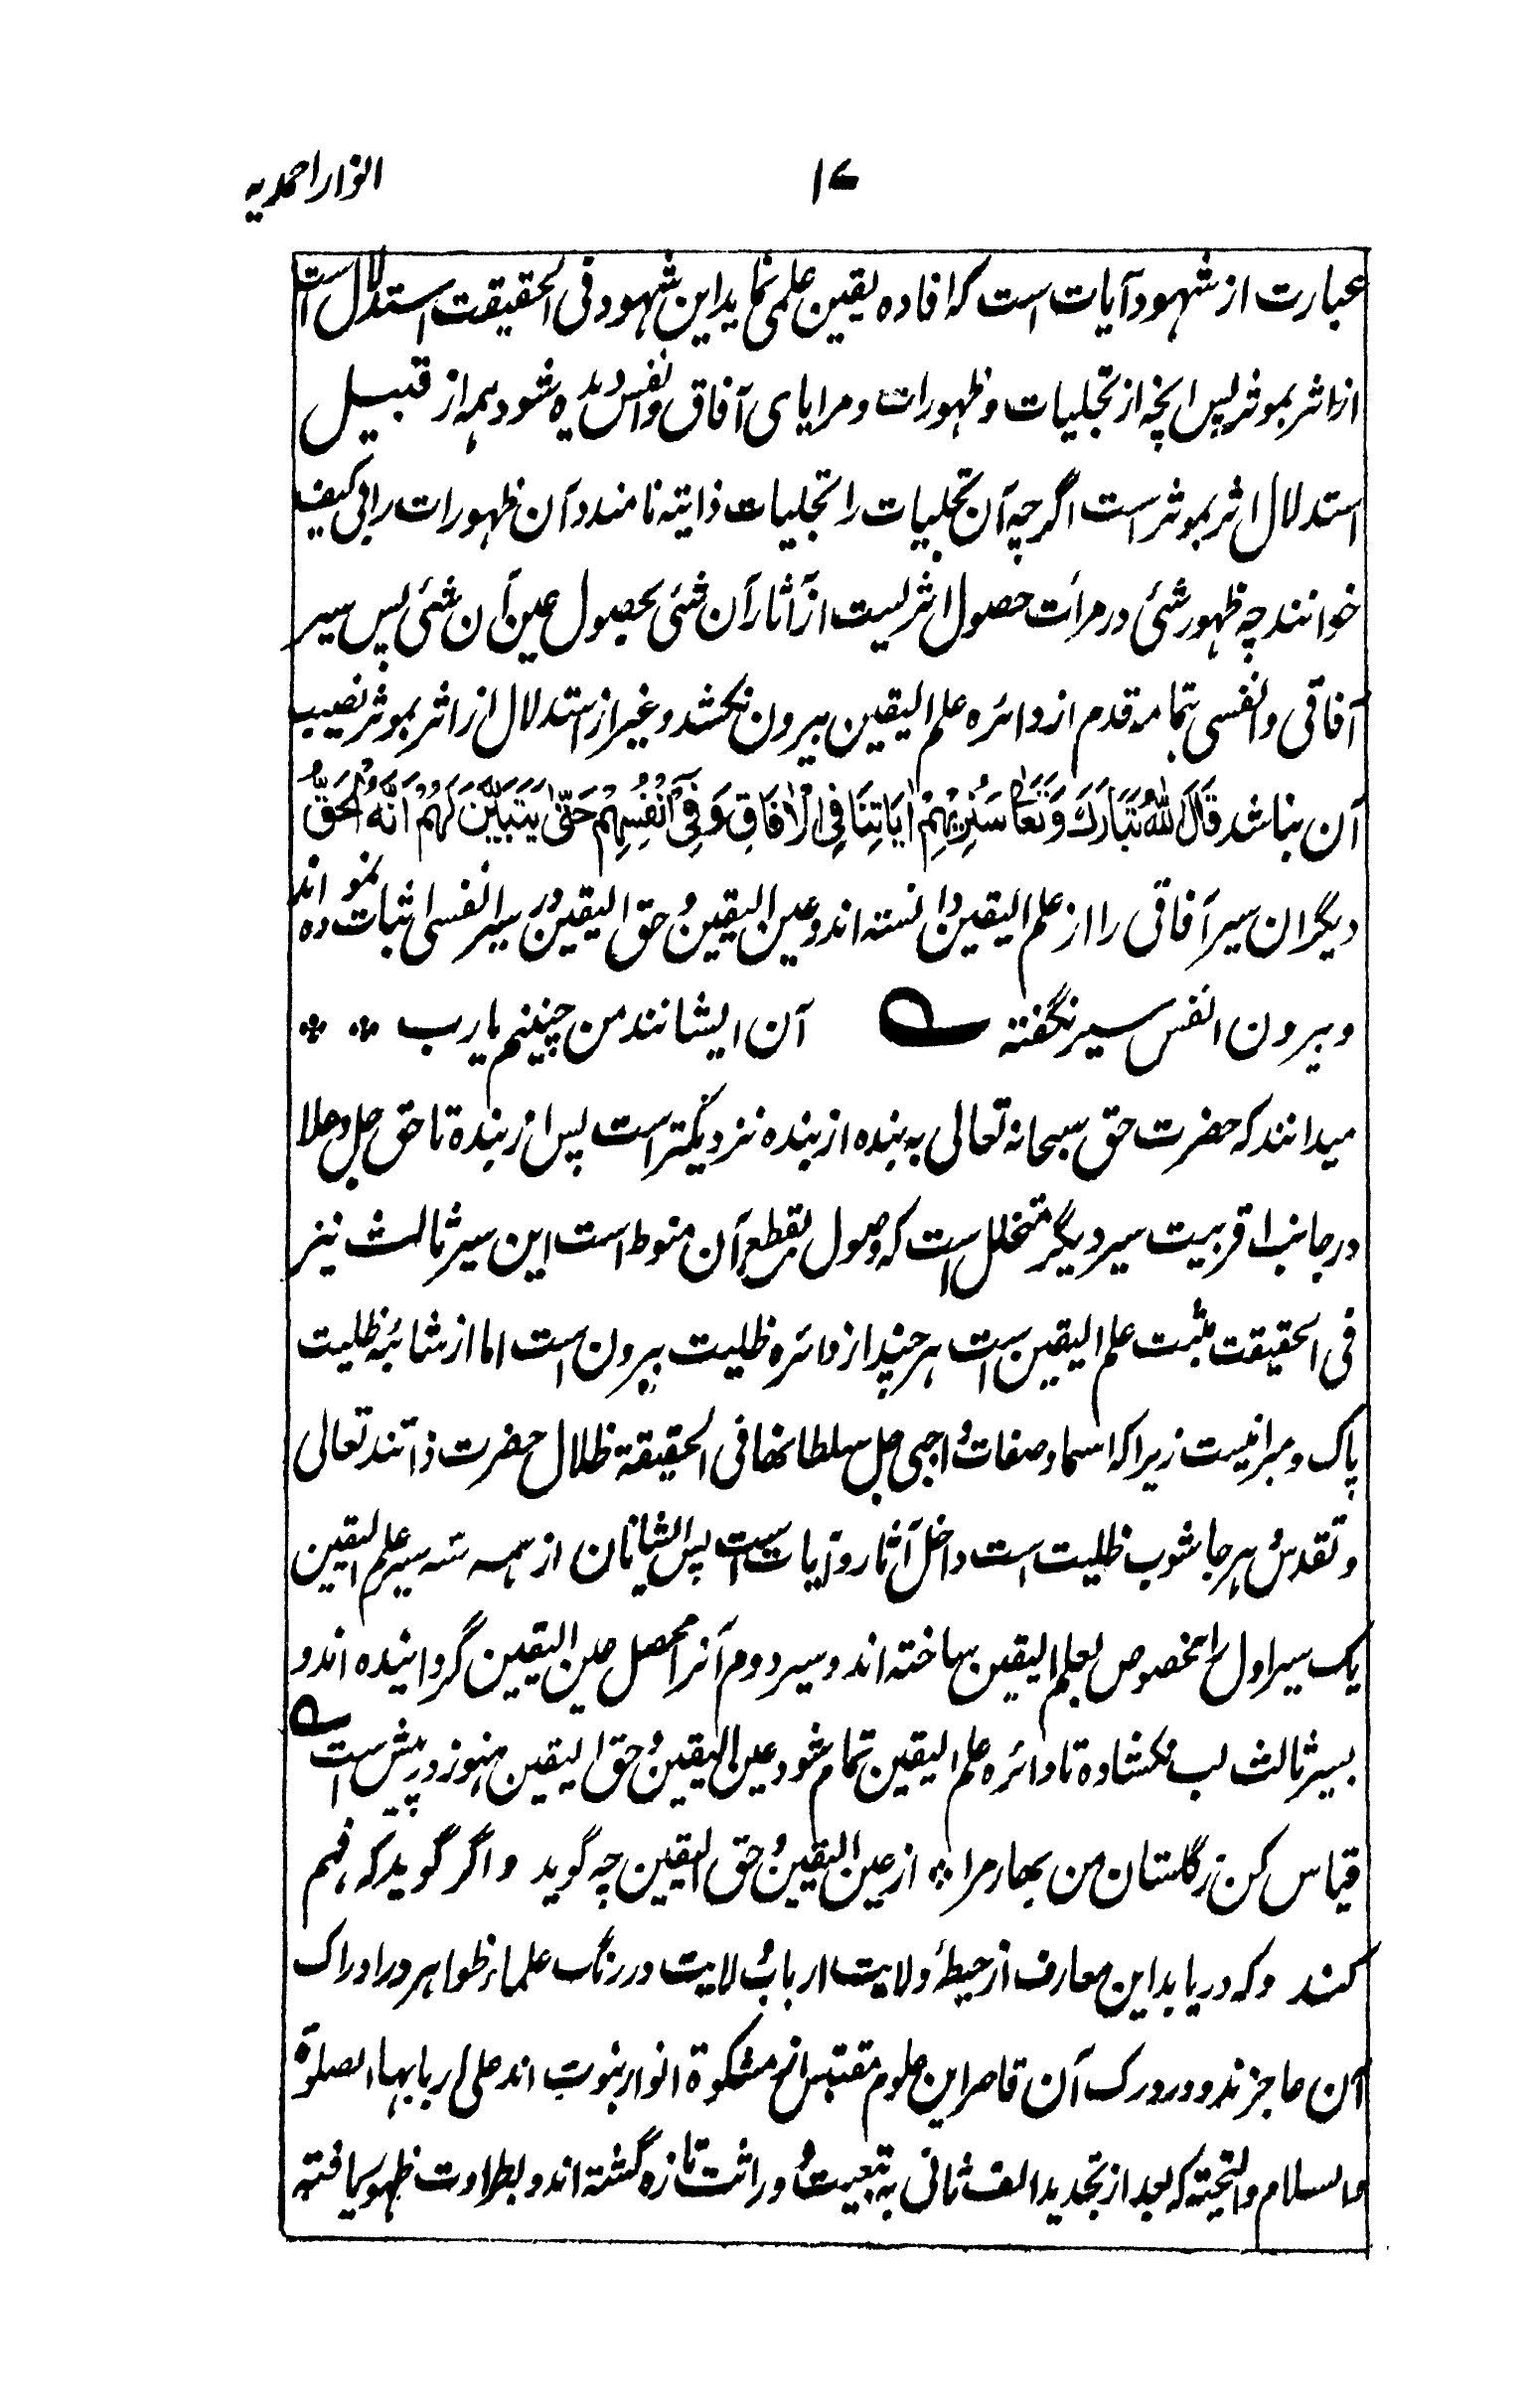 ۱۷
انوار احمدیه
عبارت از شهود آیات است که افاده یقین علمی نماید این شهود فی الحقیقت استدلال است
از اثر بموثر پس آنچه از تجلیات و ظهورات و مرایای آفاق و انفس دیده شود همه از قبیل
استدلال اثر بموثر است اگر چه آن تجلیات را تجلیات ذاتیه نامند و آن ظهورات را بی کیف
خوانند چه ظهور شئی در مرأت حصول اثریست از آثار آن شئی بحصول عین آن شئی پس سیر
آفاقی و انفسی بتمامه قدم از دائره علم الیقین بیرون نکشد و غیر از استدلال از اثر بموثر نصیب
آن نباشد قَالَ اللّٰهُ تَبَارَكَ وَتَعَالٰی سَنُرِيْهِمْ اٰيَاتِنَا فِي الْاٰفَاقِ وَفِيْ اَنْفُسِهِمْ حَتّٰى يَتَبَيَّنَ لَهُمْ اَنَّهُ الْحَقُّ
دیگران سیر آفاقی را از علم الیقین دانسته اند و عین الیقین و حق الیقین در سیر انفسی اثبات نموده اند
و بیرون انفس سیر نگفته ؎ آن ایشانند من چنینم یارب
میدانند که حضرت حق سبحانه تعالی به بنده از بنده نزدیکتر است پس از بنده تا حق جل و علا
در جانب اقربیت سیر دیگر متخلل است که وصول بقطع آن منوط است این سیر ثالث نیز
فی الحقیقت مثبت علم الیقین است هر چند از دائره ظلیت بیرون است اما از شائبه ظلیت
پاک و مبرا نیست زیرا که اسما و صفات واجبی جل سلطانها فی الحقیقة ظلال حضرت ذاتند تعالی
و تقدس و هر جا شوب ظلیت است داخل آثار و آیات است پس ایشانان از همه سه سیر علم الیقین
یک سیر اول را مخصوص بعلم الیقین ساخته اند و سیر دوم آنرا محصل عین الیقین گردانیده اند و
بسیر ثالث لب نکشاده تا دائره علم الیقین تمام شود عین الیقین و حق الیقین هنوز در پیش است ؎
قیاس کن ز گلستان من بهار مرا ٭ از عین الیقین و حق الیقین چه گوید و اگر گوید که فهم
کند و که دریابد این معارف از حیطهٔ ولایت ارباب ولایت در رنگ علماء ظواهر در ادراک
آن عاجزند و در درک آن قاصر این علوم مقتبس از مشکوة انوار نبوت اند علی اربابها الصلوة
والسلام والتحیته که بعد از تجدید الف ثانی به تبعیت و وراثت تازه گشته اند و بطراوت ظهور یافته